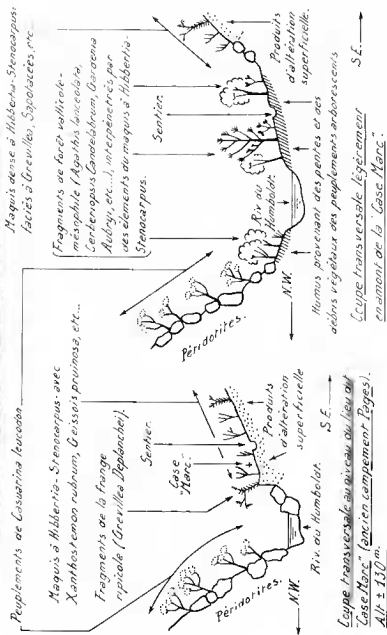 Peuplements de Casuarina leucodon.
Maquis à Hibbertia-Stenocarpus avec
Xanthostemon rubrum, Geissois pruinosa, etc...
Fragments de la frange
ripicole (Grevillea Deplanchei).
Case
"Marc"
Sentier.
Péridotites.
N.W.
Riv. du Humboldt.
S.E.
Produits
d'altération
superficielle
Coupe transversale au niveau du lieu dit
"Case Marc" (ancien campement Pages).
Alt. ± 740 m.
Maquis dense à Hibbertia-Stenocarpus:
faciès à Grevillea, Sapotacées, etc...
Fragments de forêt vallicole-
mésophile (Agathis lanceolata,
Cerberiopsis Candelabrum, Gardenia
Aubryi, etc...), interpénétrés par
des éléments du maquis à Hibbertia-
Stenocarpus.
Sentier.
Produits
d'altération
superficielle.
Péridotites.
Riv. du
Humboldt.
N.W.
S.E.
Humus provenant des pentes et des
débris végétaux des peuplements arborescents
Coupe transversale légèrement
en amont de la "Case Marc"